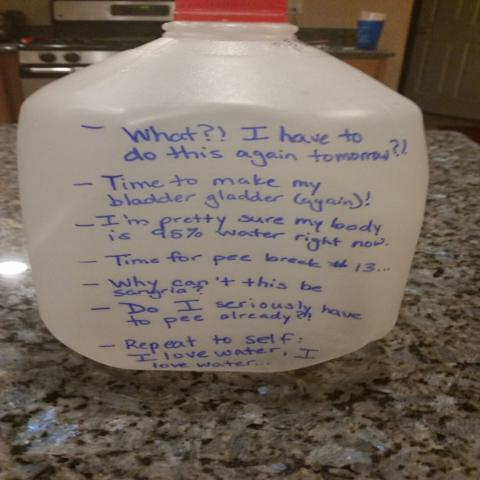 - What?! I have to
do this again tomorrow?!
- Time to make my
bladder gladder (again)!
- I'm pretty sure my body
is 95% water right now.
- Time for pee break #13...
- Why can't this be
sangria?
- Do I seriously have
to pee already?!
- Repeat to self:
I love water, I
love water...